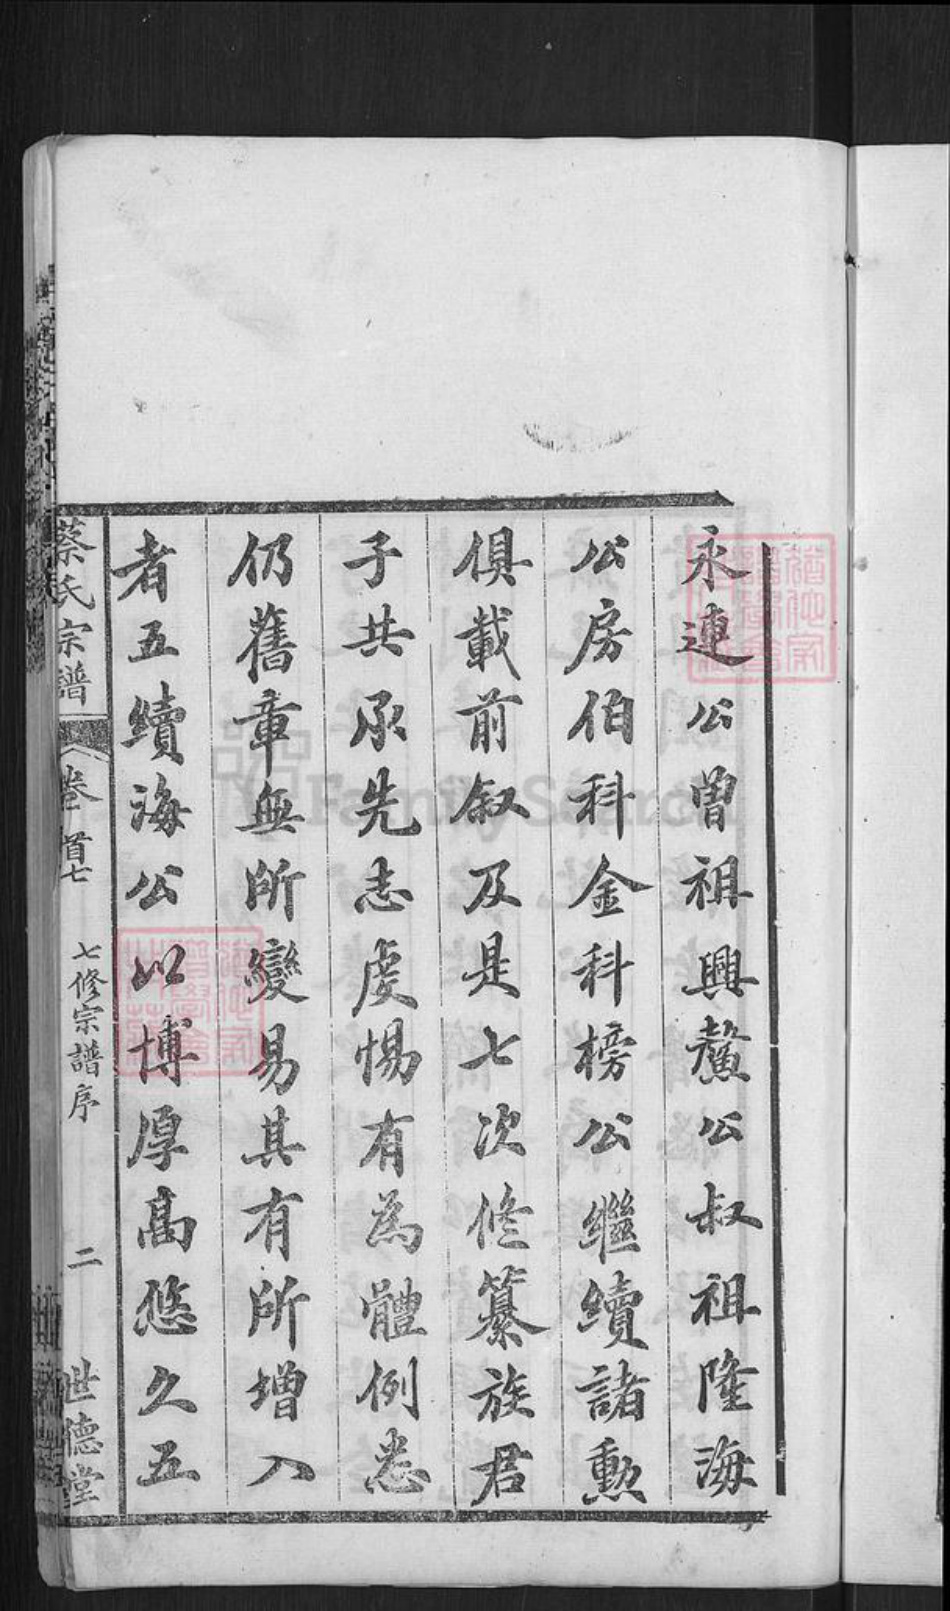 永連公曽祖興鰲公叔祖隆海
公房伯科金科榜公繼續諸勲
俱載前叙及是七次修纂族君
子共承先志虔惕有為體例悉
仍舊章無所變易其有所增入
者五續海公以博厚高悠久五
蔡氏宗譜 卷首七 七修宗譜序 二 世德堂
FamilySearch